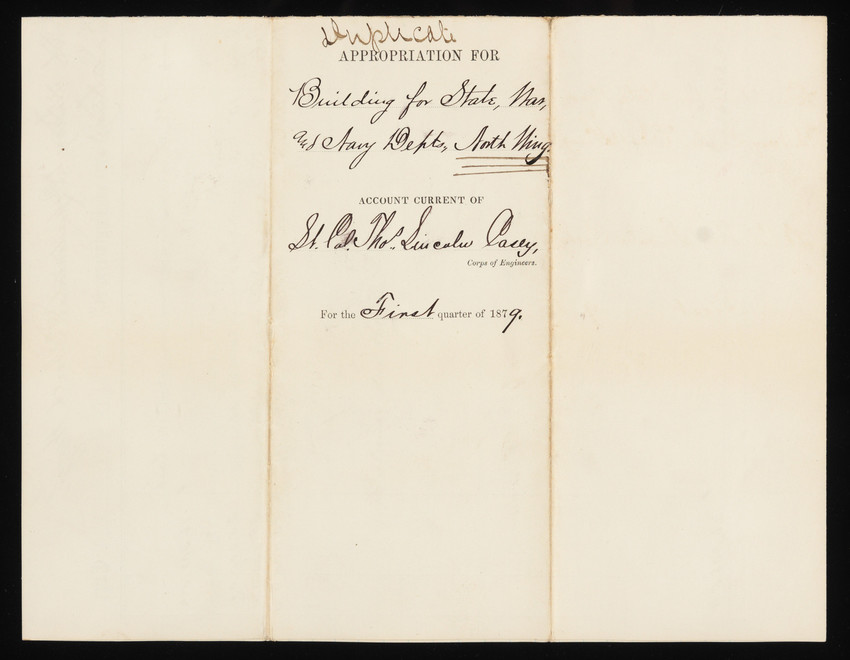 Duplicate
APPROPRIATION FOR
Building for State, War,
and Navy Depts, North Wing.
ACCOUNT CURRENT OF
Lt. Col. Thos. Lincoln Casey,
Corps of Engineers.
For the First quarter of 1879.